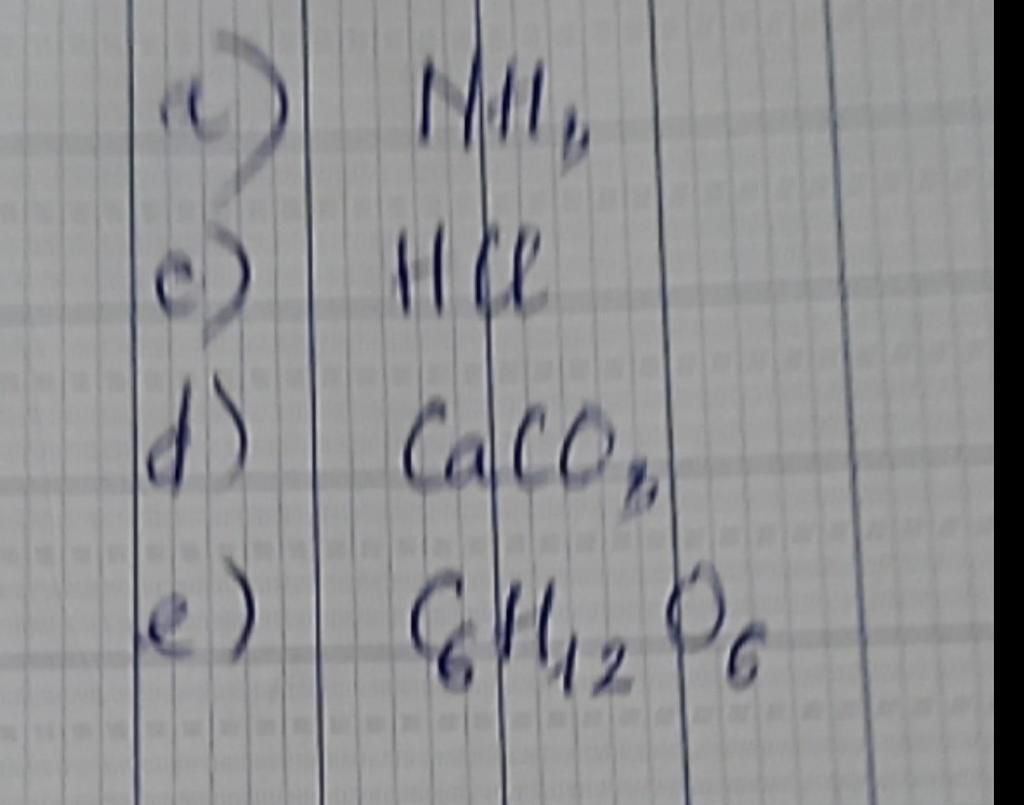 a) NH₃
c) HCl
d) CaCO₃
e) C₆H₁₂O₆